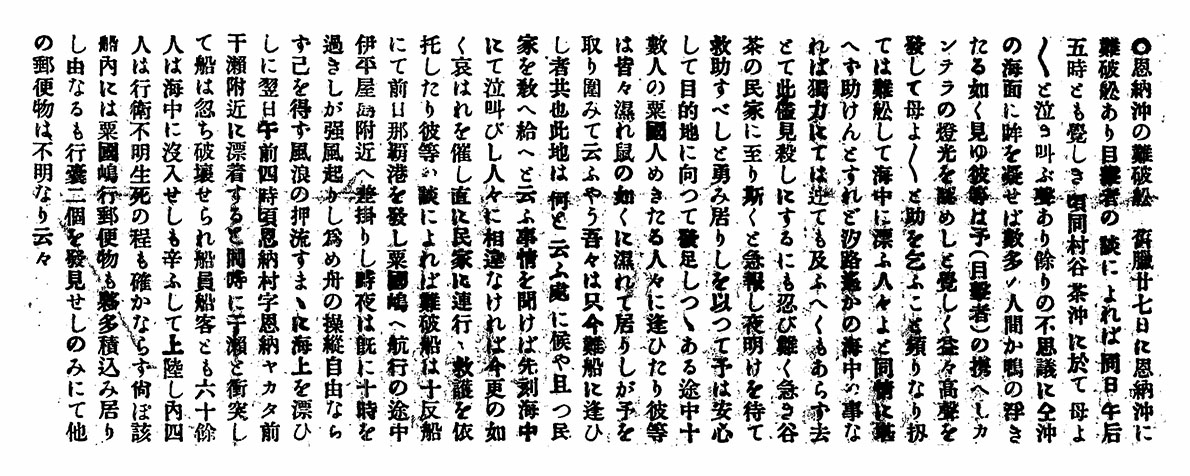 ○恩納沖の難破舩　舊臘廿七日に恩納沖に
難破舩あり目擊者の談によれば同日午后
五時とも覺しき頃同村谷茶沖に於て母よ
〳〵と泣き叫ぶ聲あり餘りの不思議に仝沖
の海面に眸を凝せば數多ノ人間か鴨の浮き
たる如く見ゆ彼等は予(目擊者)の携へしカ
ンテラの燈光を認めしと覺しく益々高聲を
發して母よ〳〵と助を乞ふこと頻りなり扨
ては難舩して海中に漂ふ人々よと同情に堪
へす助けんとすれど汐路遙かの海中の事な
れば獨力にては迚ても及ふへくもあらす去
とて此儘見殺しにするにも忍び難く急き谷
茶の民家に至り斯くと急報し夜明けを待て
救助すべしと勇み居りしを以つて予は安心
して目的地に向つて發足しつゝある途中十
數人の粟國人めきたる人々に逢ひたり彼等
は皆々濕れ鼠の如くに濕れて居りしが予を
取り圍みて云ふやう吾々は只今難船に逢ひ
し者共也此地は何と云ふ處に候や且つ民
家を敎へ給へと云ふ事情を聞けば先刻海中
にて泣叫びし人々に相違なければ今更の如
く哀はれを催し直に民家に連行き救護を依
托したり彼等の談によれば難破船は十反船
にて前日那覇港を發し粟國嶋へ航行の途中
伊平屋島附近へ差掛りし時夜は既に十時を
過きしが强風起りし爲め舟の操縱自由なら
す己を得す風浪の押流すまゝに海上を漂ひ
しに翌日午前四時頃恩納村字恩納ヤカタ前
干瀨附近に漂着すると同時に干瀨と衝突し
て船は忽ち破壞せられ船員船客とも六十餘
人は海中に沒入せしも辛ふして上陸し内四
人は行衛不明生死の程も確かならす尙ほ該
船內には粟國嶋行郵便物も夥多積込み居り
し由なるも行囊二個を發見せしのみにて他
の郵便物は不明なり云々